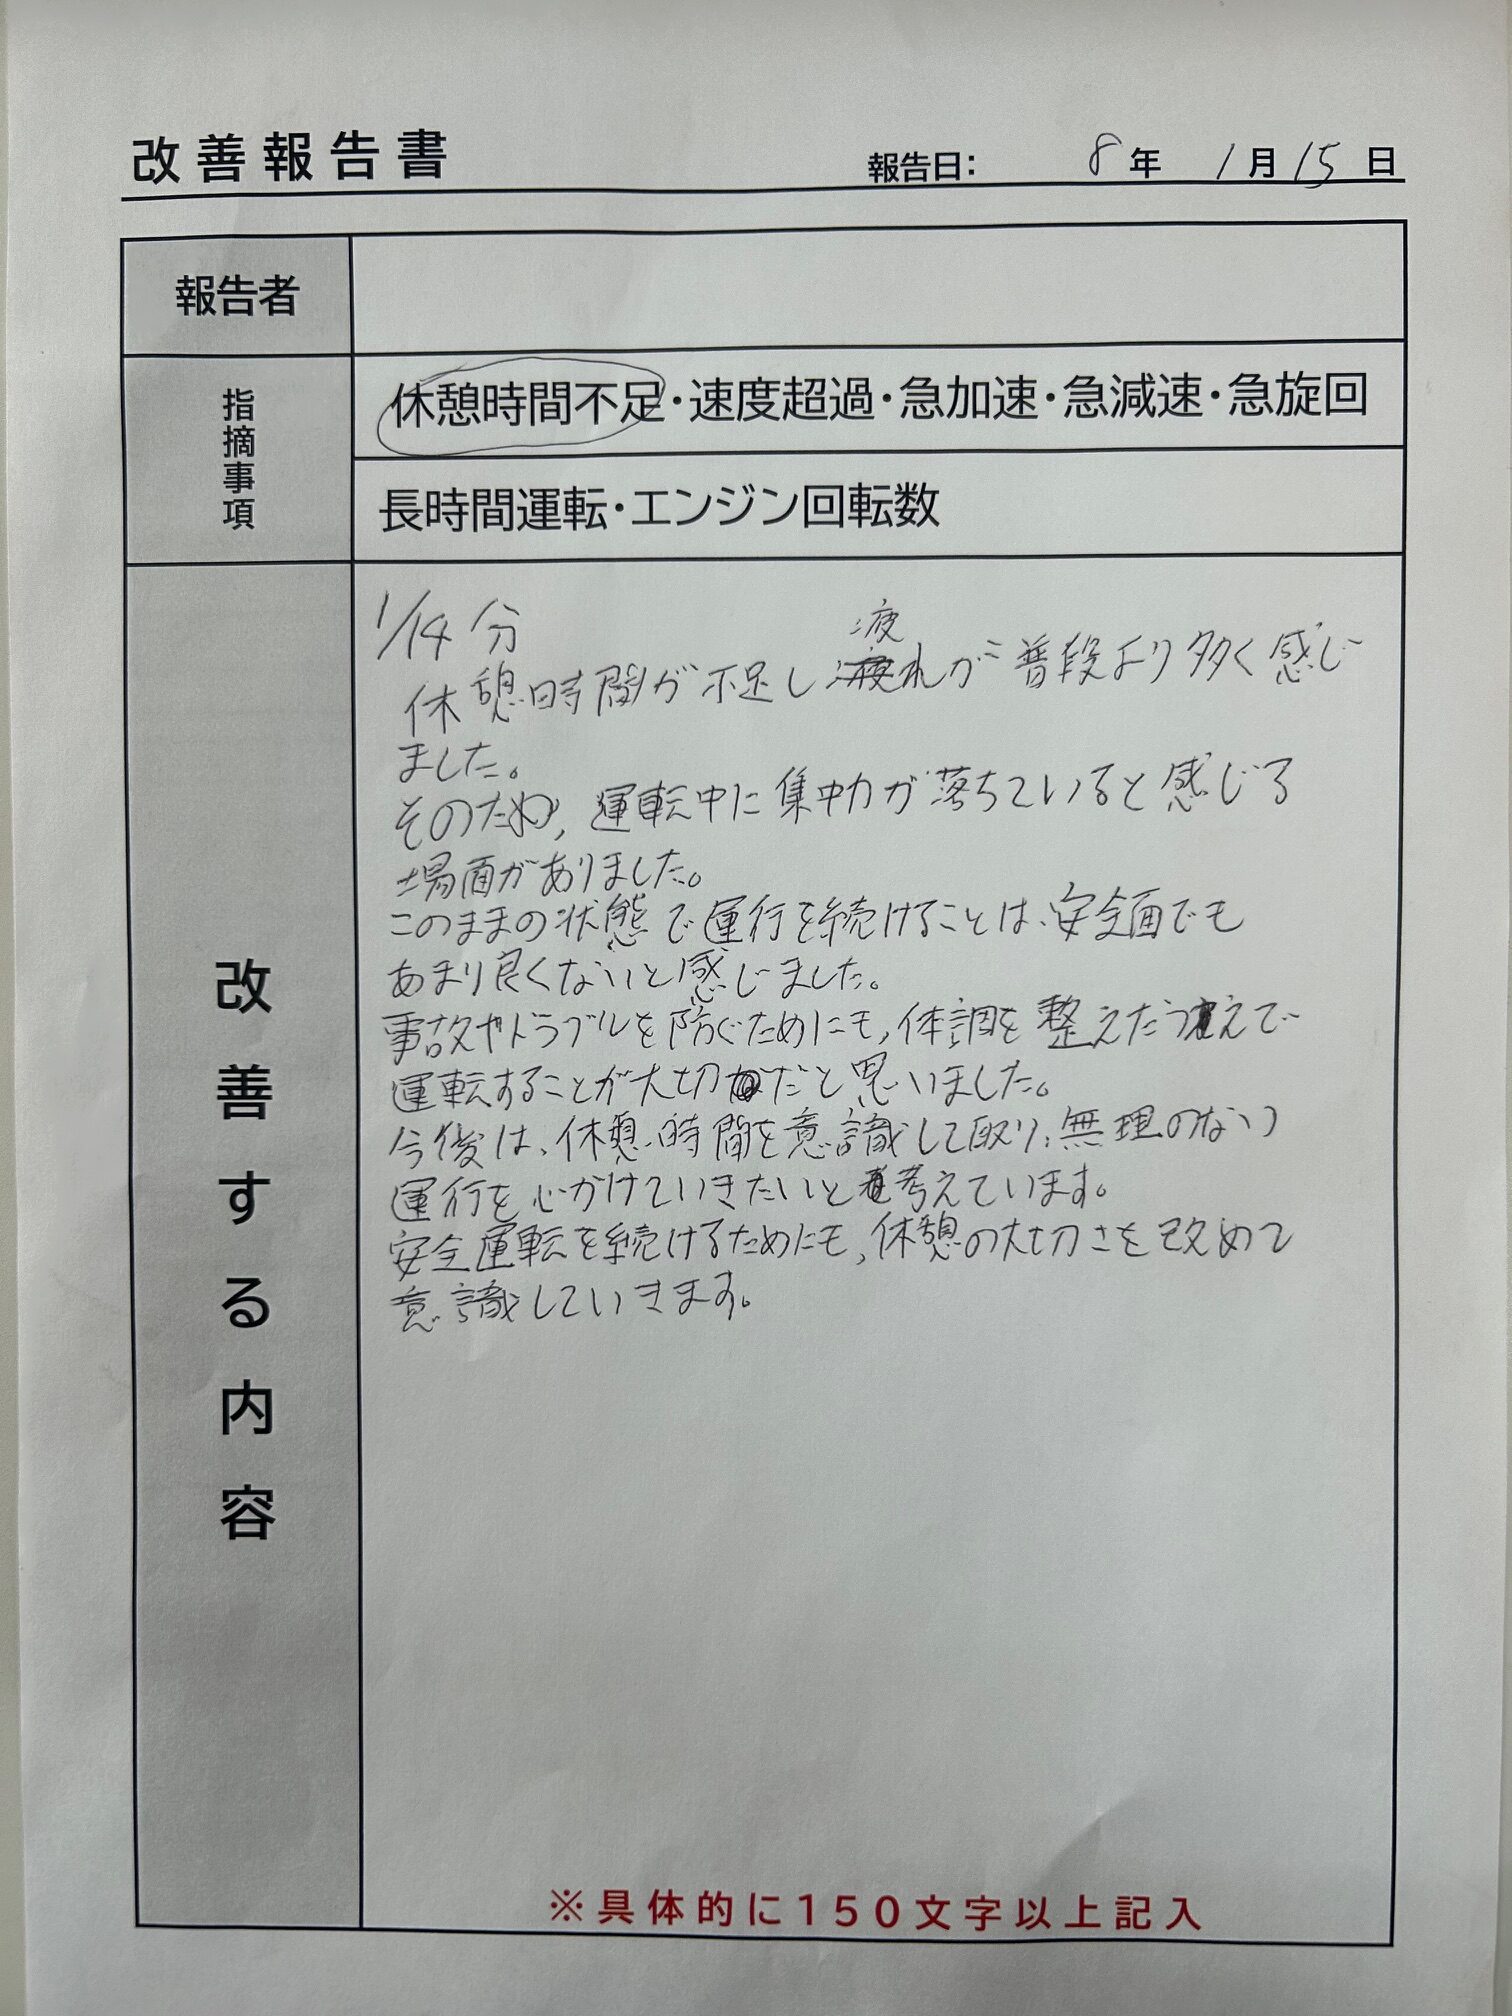 改善報告書
報告日: 8年 1月15日
報告者
指摘事項
休憩時間不足・速度超過・急加速・急減速・急旋回
長時間運転・エンジン回転数
改善する内容
1/14分
休憩時間が不足し疲れが普段より多く感じ
ました。
そのため、運転中に集中力が落ちていると感じる
場面がありました。
このままの状態で運行を続けることは、安全面でも
あまり良くないと感じました。
事故やトラブルを防ぐためにも、体調を整えたうえで
運転することが大切だと思いました。
今後は、休憩時間を意識して取り、無理のない
運行を心がけていきたいと考えています。
安全運転を続けるためにも、休憩の大切さを改めて
意識していきます。
※具体的に150文字以上記入